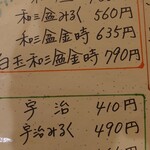 和三盆みるく 560円
和三盆金時 635円
白玉和三盆金時 790円
宇治 410円
宇治みるく 490円